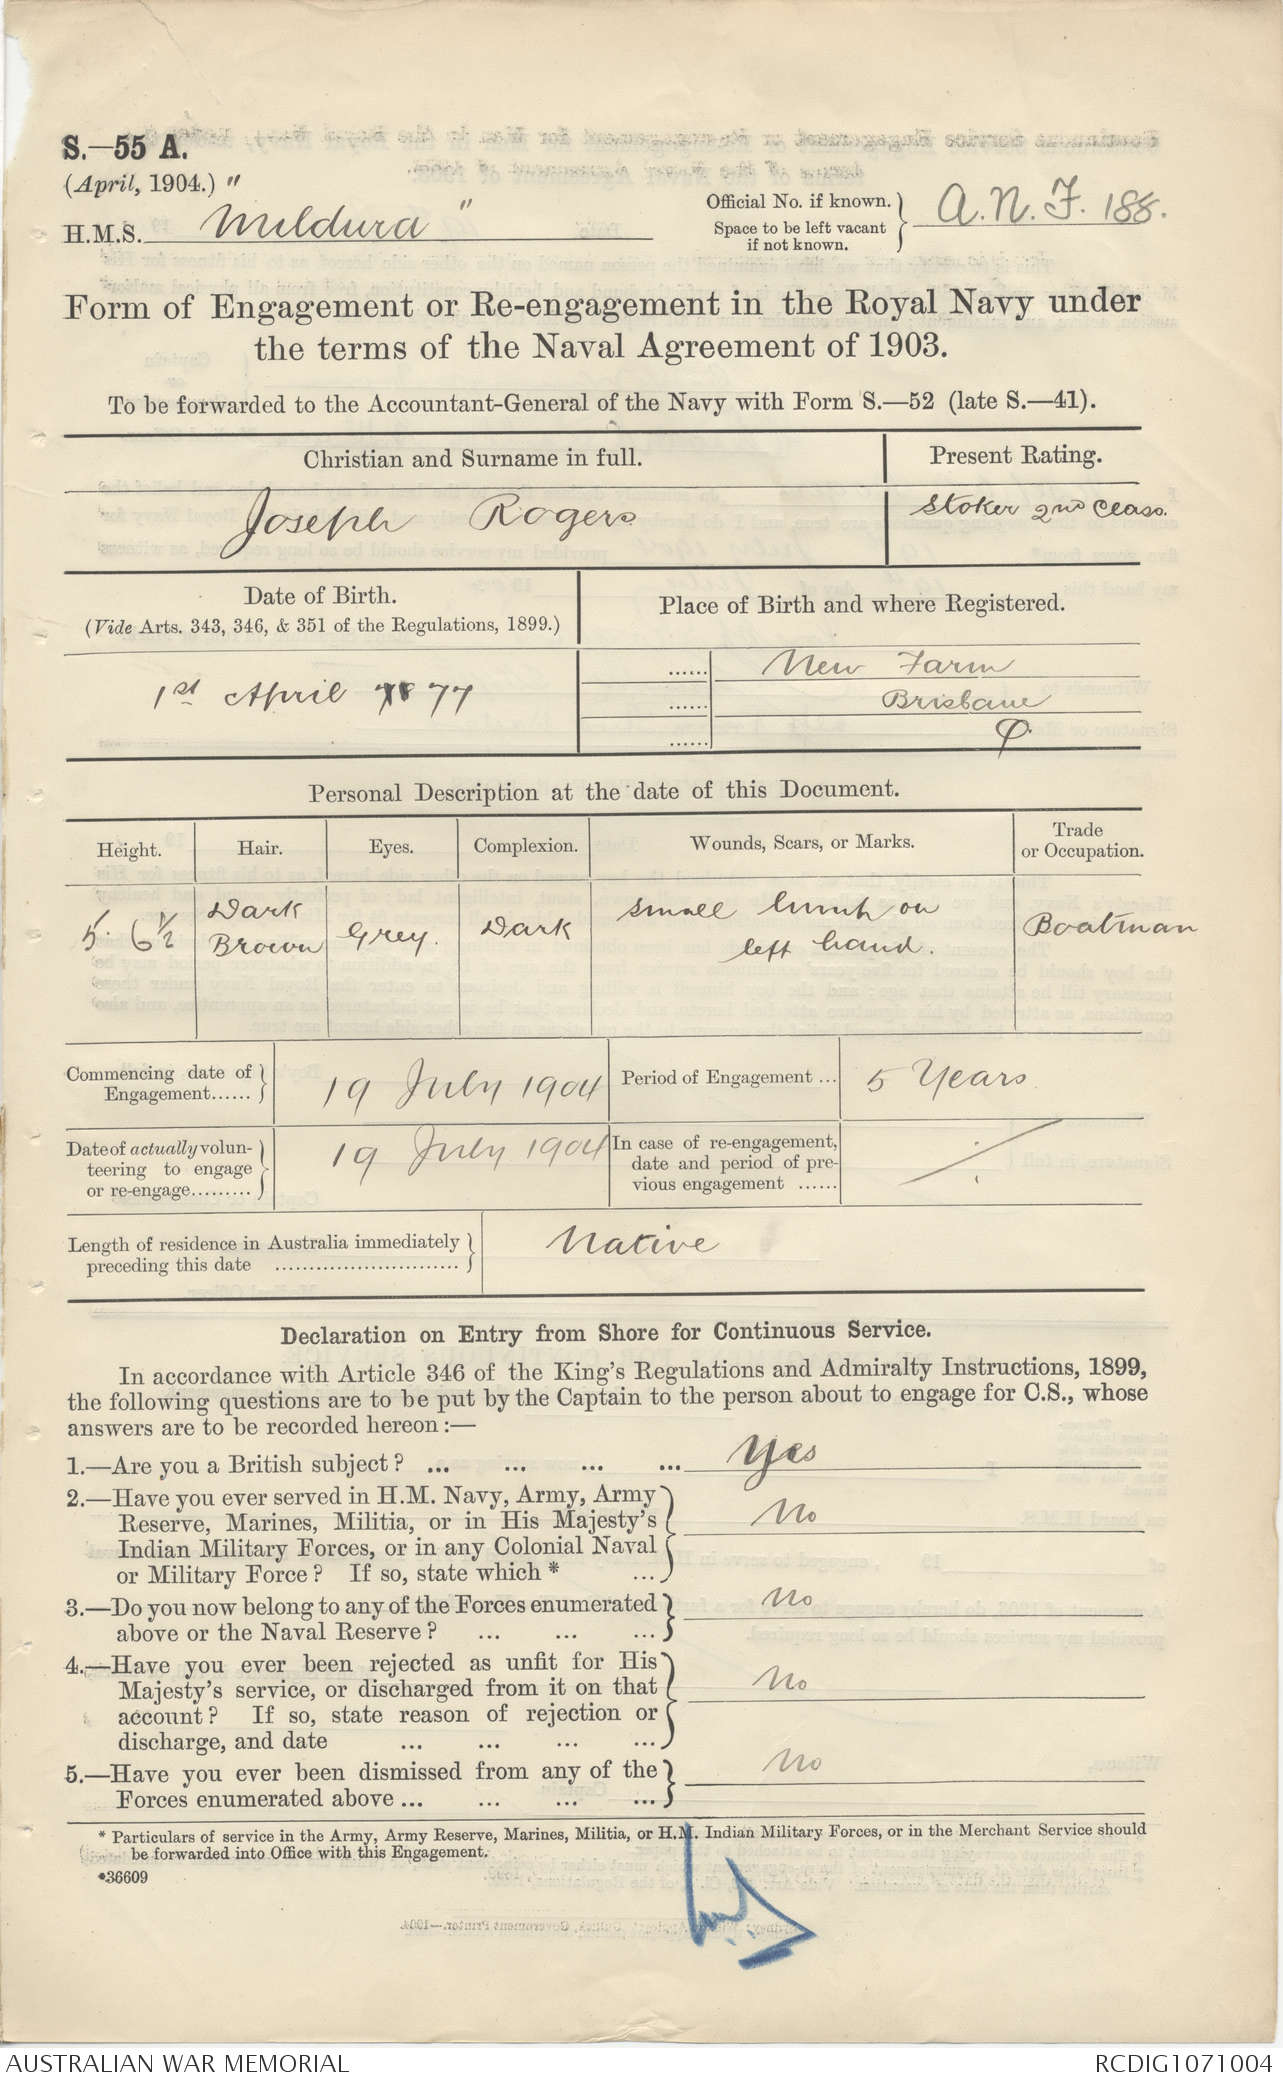 S.—55 A.
(April, 1904.) "
H.M.S. Mildura "
Official No. if known.
Space to be left vacant
if not known.
A.N.F. 188.
Form of Engagement or Re-engagement in the Royal Navy under
the terms of the Naval Agreement of 1903.
To be forwarded to the Accountant-General of the Navy with Form S.—52 (late S.—41).
Christian and Surname in full.
Present Rating.
Joseph Rogers
Stoker 2nd Class.
Date of Birth.
(Vide Arts. 343, 346, & 351 of the Regulations, 1899.)
Place of Birth and where Registered.
1st April 1877
...... New Farm
...... Brisbane
......
Personal Description at the date of this Document.
Height. Hair. Eyes. Complexion. Wounds, Scars, or Marks. Trade
or Occupation.
5' 6½
Dark
Brown
Grey.
Dark
small lump on
left hand.
Boatman
Commencing date of
Engagement......
19 July 1904
Period of Engagement ...
5 Years
Date of actually volun-
teering to engage
or re-engage.........
19 July 1904
In case of re-engagement,
date and period of pre-
vious engagement ......
Length of residence in Australia immediately
preceding this date ...........................
Native
Declaration on Entry from Shore for Continuous Service.
In accordance with Article 346 of the King's Regulations and Admiralty Instructions, 1899,
the following questions are to be put by the Captain to the person about to engage for C.S., whose
answers are to be recorded hereon :—
1.—Are you a British subject ? ... ... ... ... Yes
2.—Have you ever served in H.M. Navy, Army, Army
Reserve, Marines, Militia, or in His Majesty's
Indian Military Forces, or in any Colonial Naval
or Military Force ? If so, state which * ...
No
3.—Do you now belong to any of the Forces enumerated
above or the Naval Reserve ? ... ... ...
No
4.—Have you ever been rejected as unfit for His
Majesty's service, or discharged from it on that
account ? If so, state reason of rejection or
discharge, and date ... ... ... ...
No
5.—Have you ever been dismissed from any of the
Forces enumerated above ... ... ... ...
No
* Particulars of service in the Army, Army Reserve, Marines, Militia, or H.M. Indian Military Forces, or in the Merchant Service should
be forwarded into Office with this Engagement.
*36609
AUSTRALIAN WAR MEMORIAL
RCDIG1071004